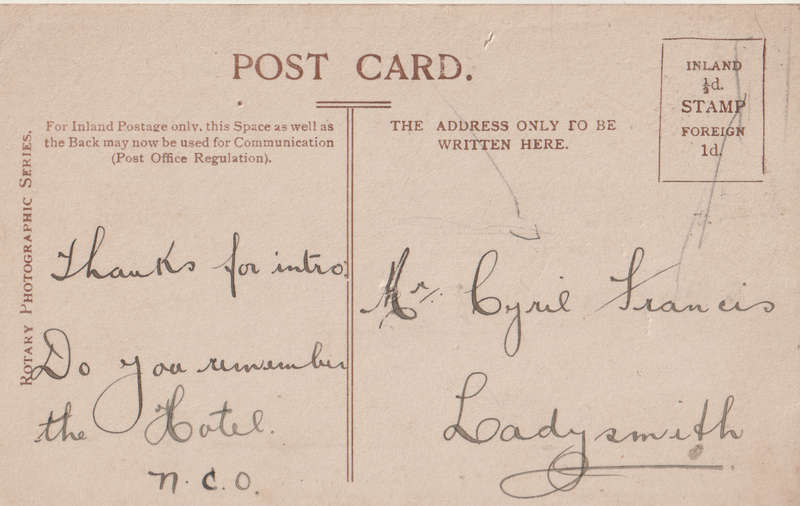 POST CARD.
For Inland Postage only, this Space as well as
the Back may now be used for Communication
(Post Office Regulation).
THE ADDRESS ONLY TO BE
WRITTEN HERE.
INLAND
½d.
STAMP
FOREIGN
1d.
ROTARY PHOTOGRAPHIC SERIES.
Thanks for intro:
Do you remember
the Hotel.
N.C.O.
Mr. Cyril Francis
Ladysmith